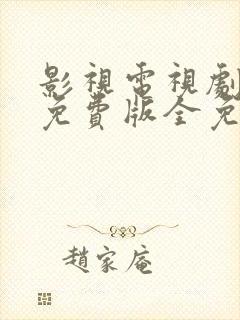 影視電視劇
免費版全免
趙家庵